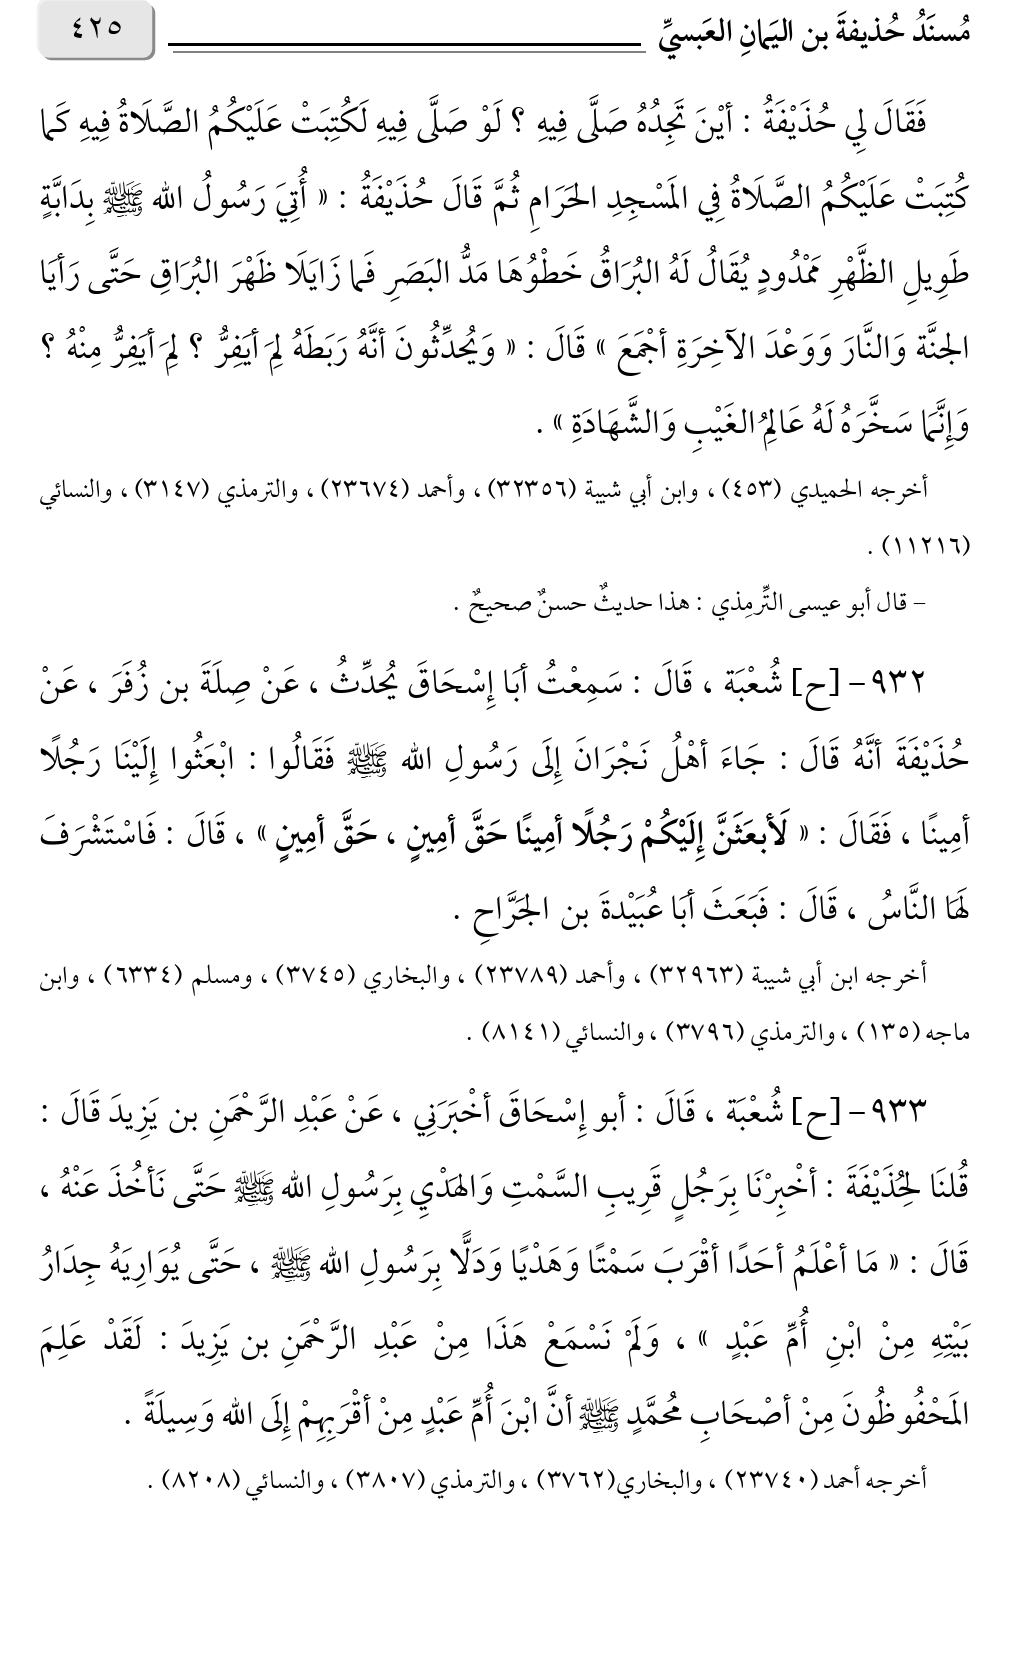 مُسنَدُ حُذيفةَ بن اليَمانِ العَبسيِّ ٤٢٥
فَقَالَ لِي حُذَيْفَةُ : أيْنَ تَجِدُهُ صَلَّى فِيهِ ؟ لَوْ صَلَّى فِيهِ لَكُتِبَتْ عَلَيْكُمُ الصَّلَاةُ فِيهِ كَما
كُتِبَتْ عَلَيْكُمُ الصَّلَاةُ فِي المَسْجِدِ الحَرَامِ ثُمَّ قَالَ حُذَيْفَةُ : « أُتِيَ رَسُولُ الله ﷺ بِدَابَّةٍ
طَوِيلِ الظَّهْرِ مَمْدُودٍ يُقَالُ لَهُ البُرَاقُ خَطْوُهَا مَدُّ البَصَرِ فَما زَايَلَا ظَهْرَ البُرَاقِ حَتَّى رَأيَا
الجنَّة وَالنَّارَ وَوَعْدَ الآخِرَةِ أجْمَعَ » قَالَ : « وَيُحدِّثُونَ أنَّهُ رَبَطَهُ لِمَ أيَفِرُّ ؟ لِمَ أيَفِرُّ مِنْهُ ؟
وَإِنَّمَا سَخَّرَهُ لَهُ عَالِمُ الغَيْبِ وَالشَّهَادَةِ » .
أخرجه الحميدي (٤٥٣) ، وابن أبي شيبة (٣٢٣٥٦) ، وأحمد (٢٣٦٧٤) ، والترمذي (٣١٤٧) ، والنسائي
(١١٢١٦) .
– قال أبو عيسى التِّرمِذي : هذا حديثٌ حسنٌ صحيحٌ .
٩٣٢ – [ح] شُعْبَة ، قَالَ : سَمِعْتُ أبَا إِسْحَاقَ يُحدِّثُ ، عَنْ صِلَةَ بن زُفَرَ ، عَنْ
حُذَيْفَةَ أنَّهُ قَالَ : جَاءَ أهْلُ نَجْرَانَ إِلَى رَسُولِ الله ﷺ فَقَالُوا : ابْعَثُوا إِلَيْنَا رَجُلًا
أمِينًا ، فَقَالَ : « لَأبعَثَنَّ إِلَيْكُمْ رَجُلًا أمِينًا حَقَّ أمِينٍ ، حَقَّ أمِينٍ » ، قَالَ : فَاسْتَشْرَفَ
لَهَا النَّاسُ ، قَالَ : فَبَعَثَ أبَا عُبَيْدةَ بن الجَرَّاحِ .
أخرجه ابن أبي شيبة (٣٢٩٦٣) ، وأحمد (٢٣٧٨٩) ، والبخاري (٣٧٤٥) ، ومسلم (٦٣٣٤) ، وابن
ماجه (١٣٥) ، والترمذي (٣٧٩٦) ، والنسائي (٨١٤١) .
٩٣٣ – [ح] شُعْبَة ، قَالَ : أبو إِسْحَاقَ أخْبَرَنِي ، عَنْ عَبْدِ الرَّحْمَنِ بن يَزِيدَ قَالَ :
قُلنَا لِحُذَيْفَةَ : أخْبِرْنَا بِرَجُلٍ قَرِيبِ السَّمْتِ وَالهَدْيِ بِرَسُولِ الله ﷺ حَتَّى نَأخُذَ عَنْهُ ،
قَالَ : « مَا أعْلَمُ أحَدًا أقْرَبَ سَمْتًا وَهَدْيًا وَدَلًّا بِرَسُولِ الله ﷺ ، حَتَّى يُوَارِيَهُ جِدَارُ
بَيْتِهِ مِنْ ابْنِ أُمِّ عَبْدٍ » ، وَلَمْ نَسْمَعْ هَذَا مِنْ عَبْدِ الرَّحْمَنِ بن يَزِيدَ : لَقَدْ عَلِمَ
المَحْفُوظُونَ مِنْ أصْحَابِ مُحمَّدٍ ﷺ أنَّ ابْنَ أُمِّ عَبْدٍ مِنْ أقْرَبِهِمْ إِلَى الله وَسِيلَةً .
أخرجه أحمد (٢٣٧٤٠) ، والبخاري(٣٧٦٢) ، والترمذي (٣٨٠٧) ، والنسائي (٨٢٠٨) .